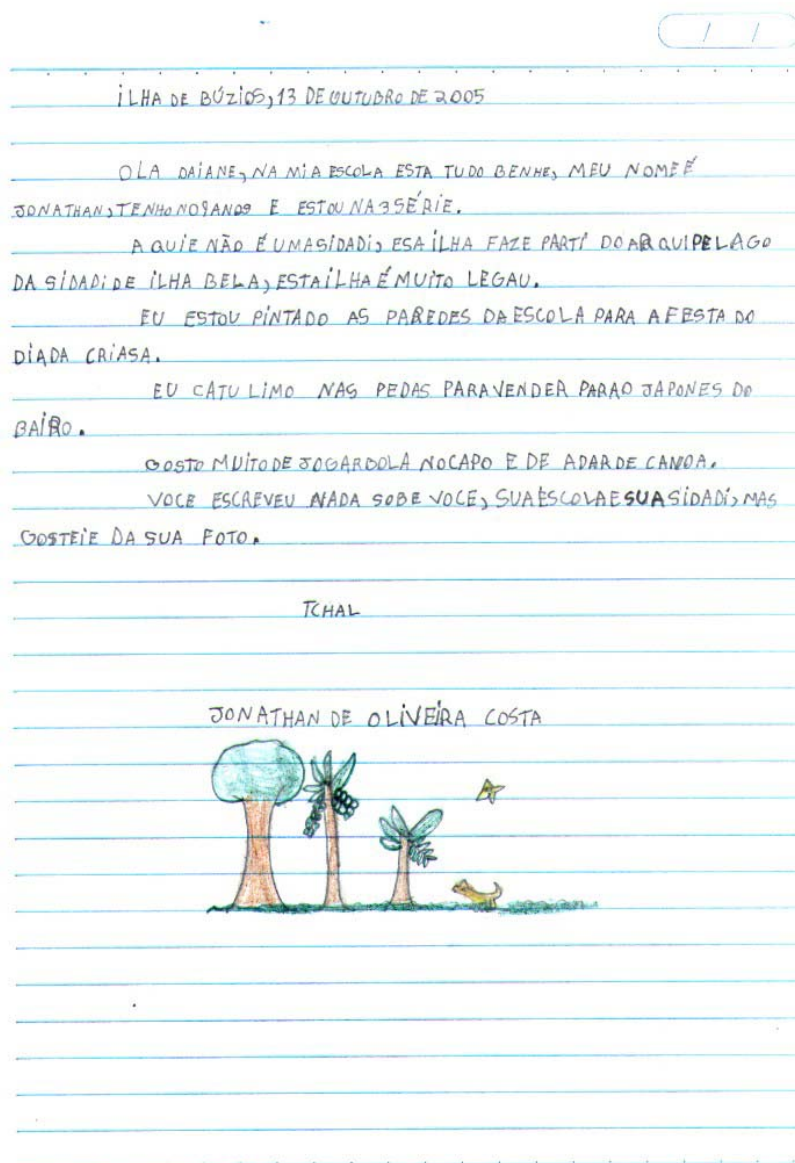 ILHA DE BÚZIOS, 13 DE OUTUBRO DE 2005
OLA DAIANE, NA MIA ESCOLA ESTA TUDO BENHE, MEU NOME É
JONATHAN, TENHO NO9ANOS E ESTOU NA 3 SÉRIE.
A QUIE NÃO É UMASIDADI, ESA ILHA FAZE PARTI DO ARQUIPELAGO
DA SIDADI DE ILHA BELA, ESTA ILHA É MUITO LEGAU.
EU ESTOU PINTADO AS PAREDES DA ESCOLA PARA A FESTA DO
DIADA CRIASA.
EU CATU LIMO NAS PEDAS PARAVENDER PARAO JAPONES DO
BAIRO.
GOSTO MUITO DE JOGARBOLA NOCAPO E DE ADAR DE CANOA.
VOCE ESCREVEU NADA SOBE VOCE, SUA ESCOLA E SUA SIDADI, MAS
GOSTEIE DA SUA FOTO.
TCHAL
JONATHAN DE OLIVEIRA COSTA